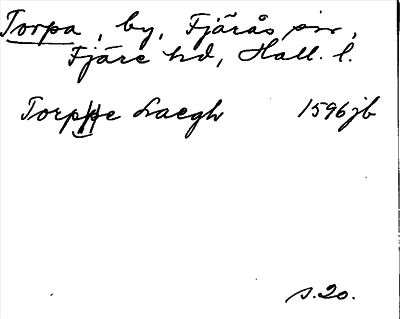 Torpa, by, Fjärås sn,
Fjäre hd, Hall. l.
Torppe Laegh 1596 jb
s. 20.